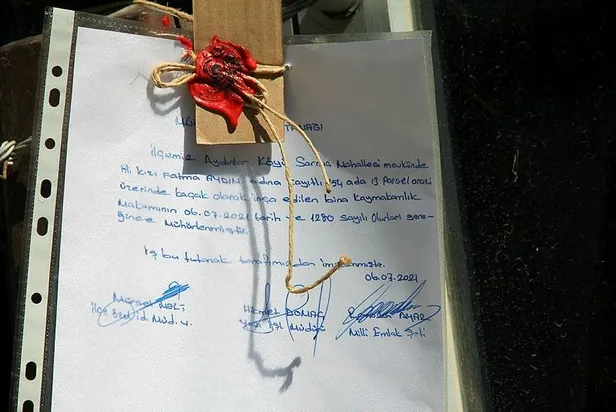 MÜ TANAĞI
İlçemiz Aydınlar Köyü Sarma Mahallesi mevkiinde
Ali kızı Fatma AYDIN adına kayıtlı 154 ada 13 Parsel arazi
üzerinde kaçak olarak inşa edilen bina Kaymakamlık
Makamının 06.07.2021 tarih ve 1280 sayılı Olurları gere-
ğince Mühürlenmiştir.
İş bu tutanak tarafımızdan imzalanmıştır.
06.07.2021
Mürsel Hikmet
İlçe Özel id. Müd. V. Yazı İşl. Müdürü Milli Emlak Şefi